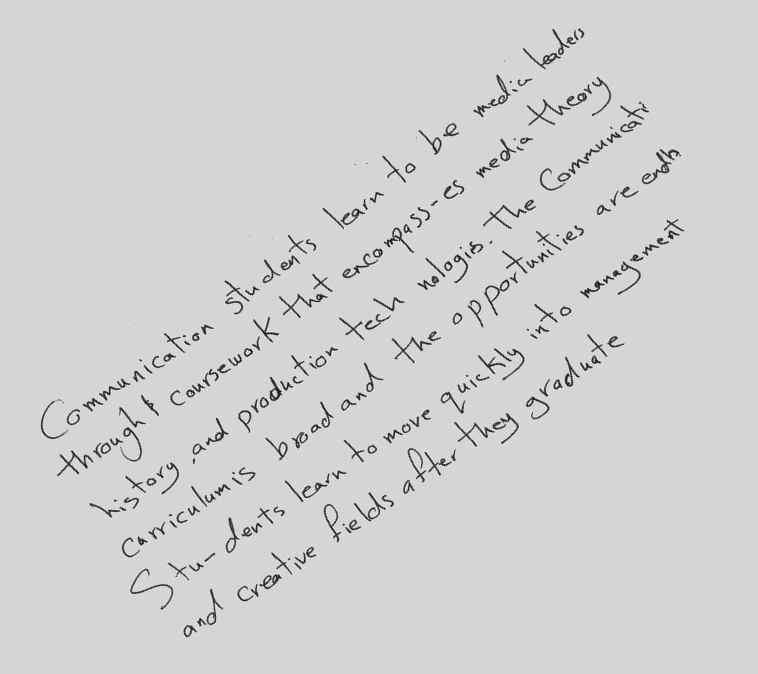 Communication students learn to be media leaders
through coursework that encompass-es media theory
history, and production tech nologis. The Communicati
curriculum is broad and the opportunities are endls
Stu-dents learn to move quickly into management
and creative fields after they graduate